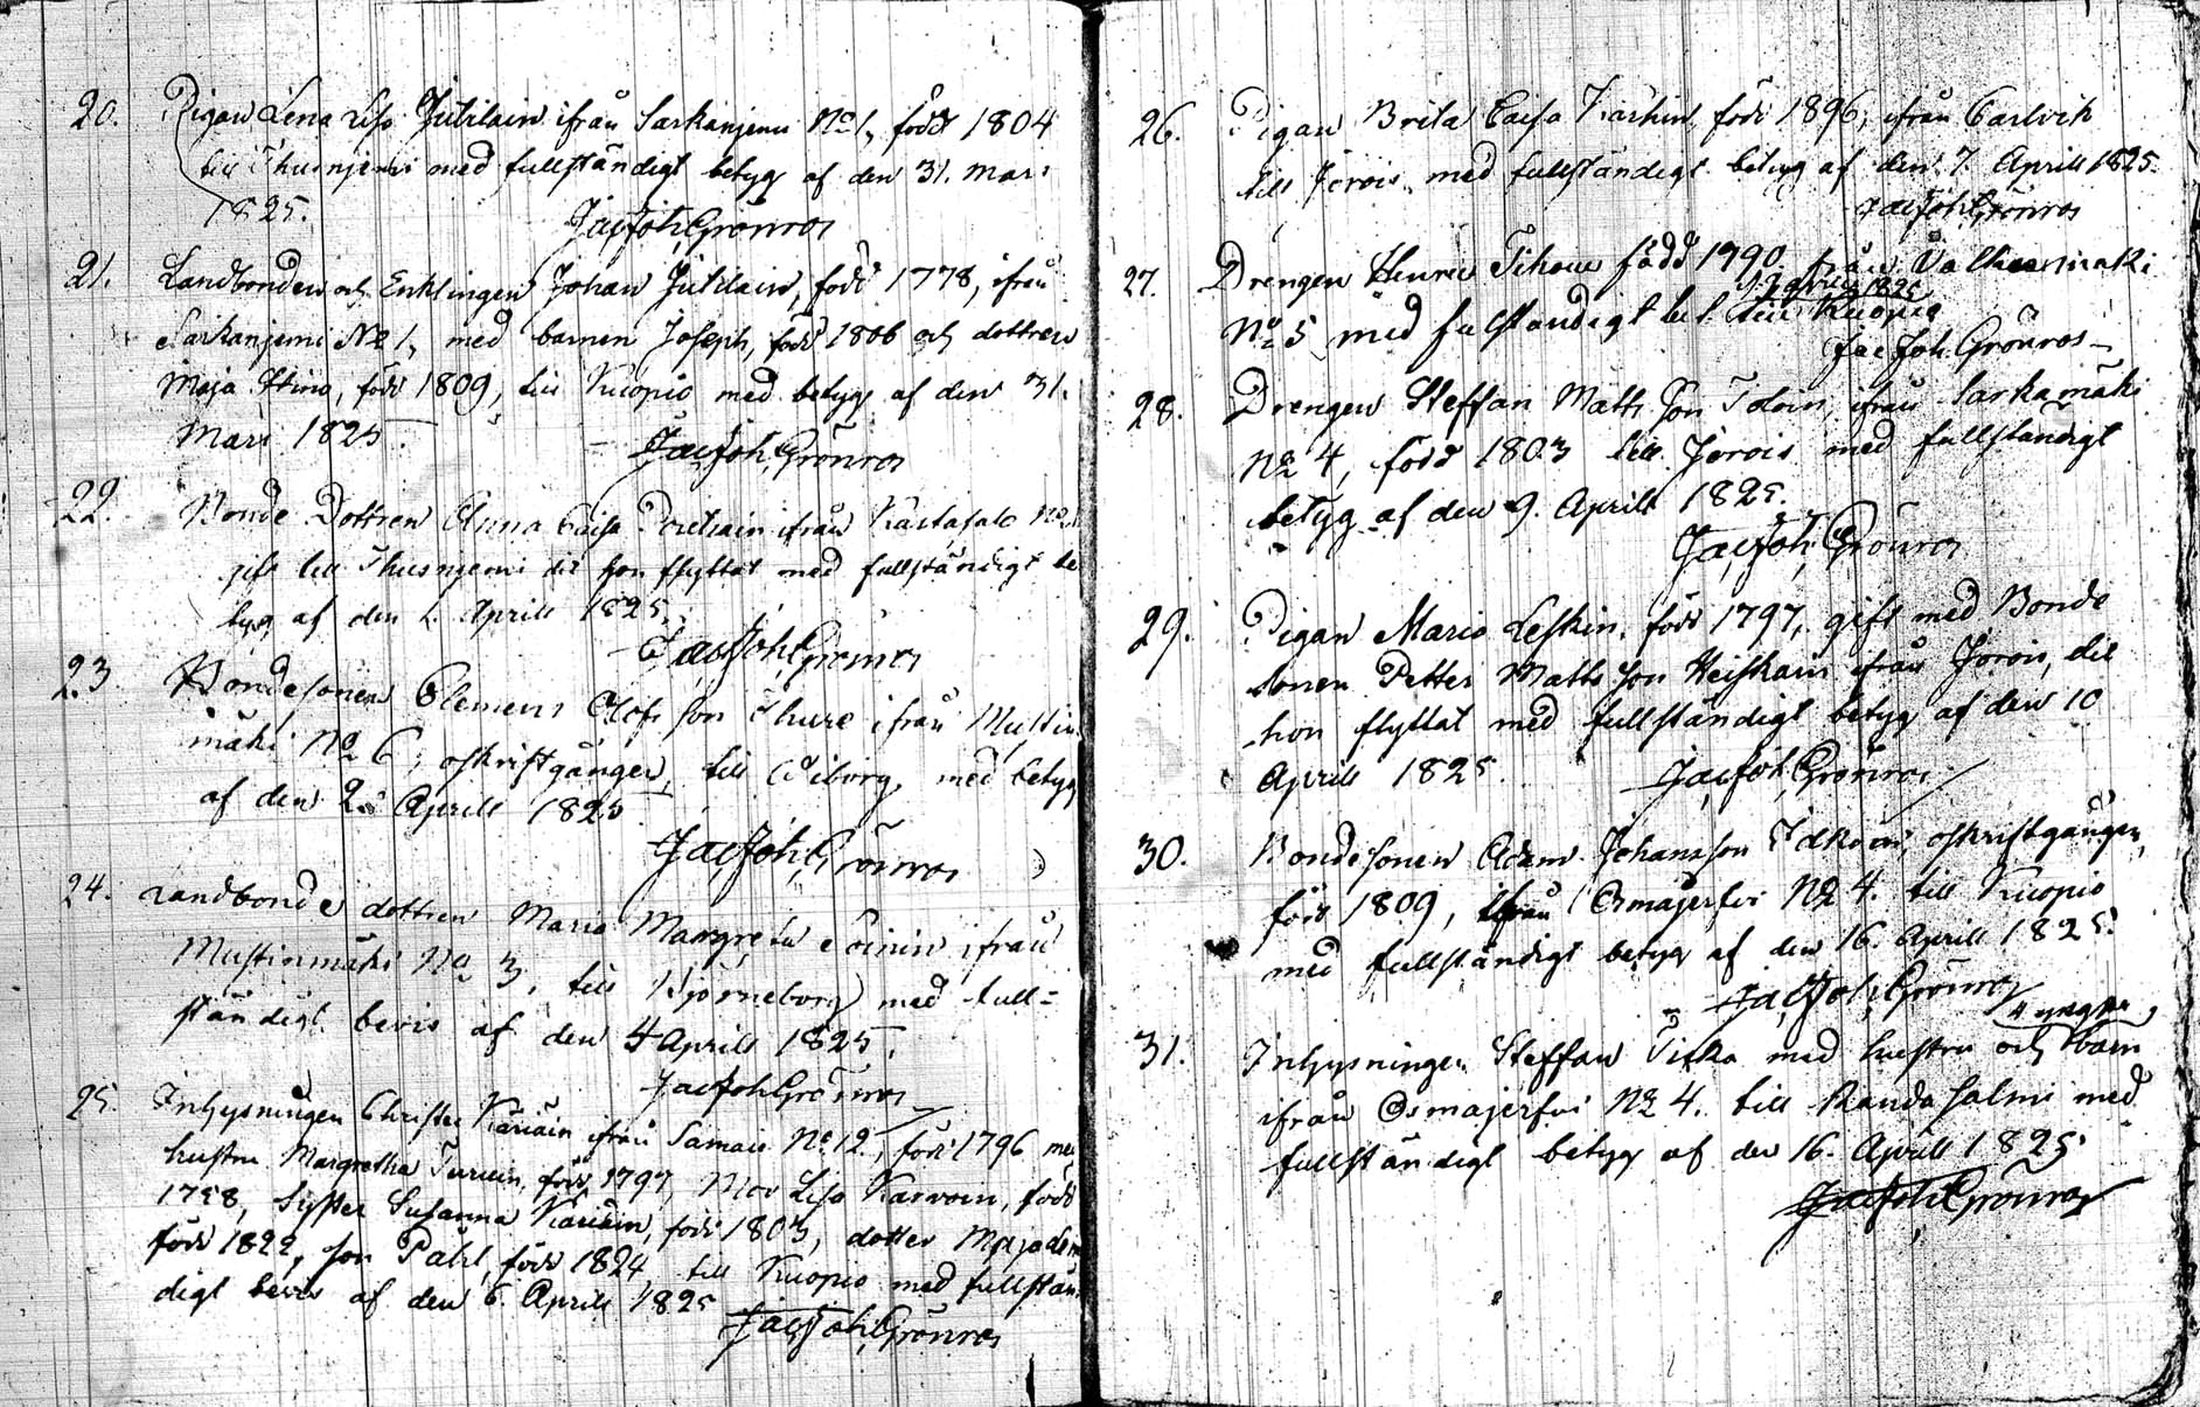 20. Pigan Lena Lisa Jutilain ifrån Sarkanjemi No 1, född 1804
till Thusnjemi med fullständigt betyg af den 31. Mars
1825.
Jac Joh Grönros
21. Landbonden och Enklingen Johan Jutilain, född 1778, ifrån
Sarkanjemi No 1, med barnen Joseph, född 1806 och dottren
Maja Stina, född 1809, till Kuopio med betyg af den 31.
Mars 1825.
Jac Joh Grönros
22. Bonde Dottren Anna Caisa ifrån No
gift till Thusnjemi dit hon flyttat med fullständigt be
tyg af den 1. Aprill 1825.
Jac Joh Grönros
23. Bondesonen Clemens Olofs son Thure ifrån Mustin
mäki No 6, oskriftgången, till Wiborg, med betyg
af den 2 Aprill 1825
Jac Joh Grönros
24. Landbonde dottren Maria Margreta Soinin ifrån
Mustinmäki No 3, till Björneborg med full=
ständigt bevis af den 4 Aprill 1825.
Jac Joh Grönros
25. Inhysningen Christer Käriäin ifrån Samais No 12, född 1796 med
hustru Margretha född 1797, Mor Lisa Karvoin, född
1758, Syster Susanna Käriäin, född 1803, dotter Maja
född 1822, son Pahl, född 1824, till Kuopio med fullstän
digt bevis af den 6. Aprill 1825
Jac Joh Grönros
26. Pigan Brita Caisa född 1896, ifrån Carlvik
till Jorois, med fullständigt betyg af den 7. Aprill 1825.
Jac Joh Grönros
27. Drengen Henric Tihoin född 1790 från
Aprill 1825
No 5 med fulständigt bet. till Kuopio
Jac Joh Grönros
28. Drengen Steffan Matts Son Tolvin, ifrån Sarkamäki
No 4, född 1803 till Jorois med fullständigt
betyg af den 9. Aprill 1825.
Jac Joh Grönros
29. Pigan Maria Leskin, född 1797, gift med Bonde
Sonen Petter Matts Son Heiskain ifrån Jorois, dit
hon flyttat med fullständigt betyg af den 10
Aprill 1825.
Jac Joh Grönros
30. Bondesonen Adam Johansson oskriftgången,
född 1809, ifrån Osmajerfvi No 4. till Kuopio
med fullständigt betyg af den 16. Aprill 1825.
Jac Joh Grönros
31. Inhysningen Steffan med hustru och 4 yngre barn
ifrån Osmajerfvi No 4. till Randasalmi med
fullständigt betyg af den 16. Aprill 1825
Jac Joh Grönros